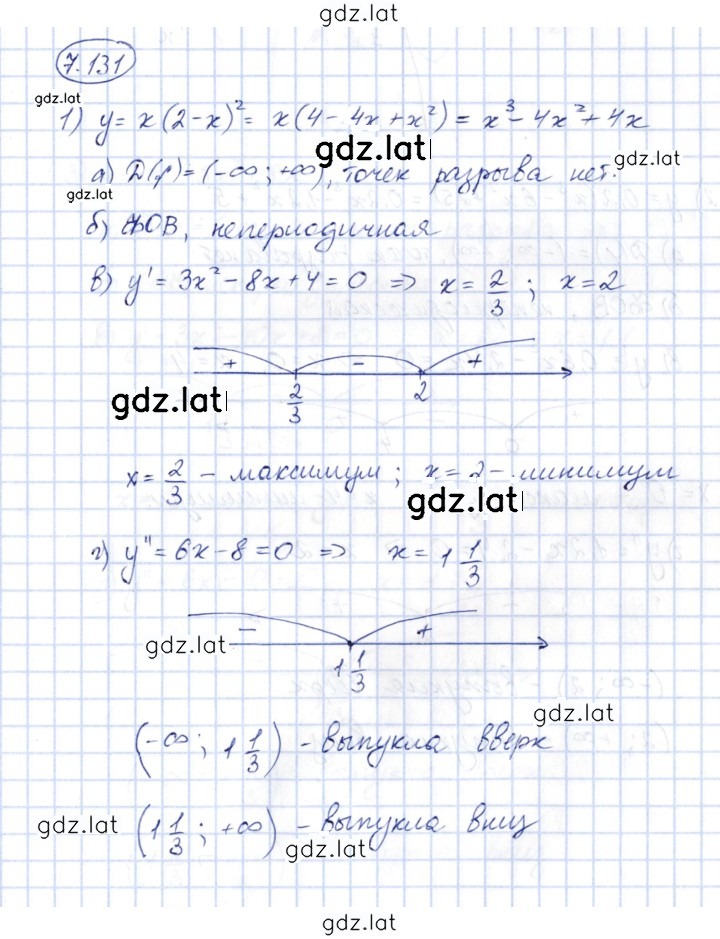 gdz.lat
7.131
gdz.lat
1) y = x(2-x)² = x(4-4x+x²) = x³-4x²+4x
gdz.lat
gdz.lat
а) D(f)=(-∞; +∞), точек разрыва нет.
gdz.lat
б) ФОВ, непериодичная
в) y' = 3x²-8x+4=0 => x= 2/3 ; x=2
+ - +
2/3 2
gdz.lat
x= 2/3 - максимум ; x=2- минимум
gdz.lat
г) y''=6x-8=0 => x= 1 1/3
- +
gdz.lat
1 1/3
gdz.lat
(-∞; 1 1/3) - выпукла вверх
gdz.lat
(1 1/3; +∞) - выпукла вниз
gdz.lat
gdz.lat